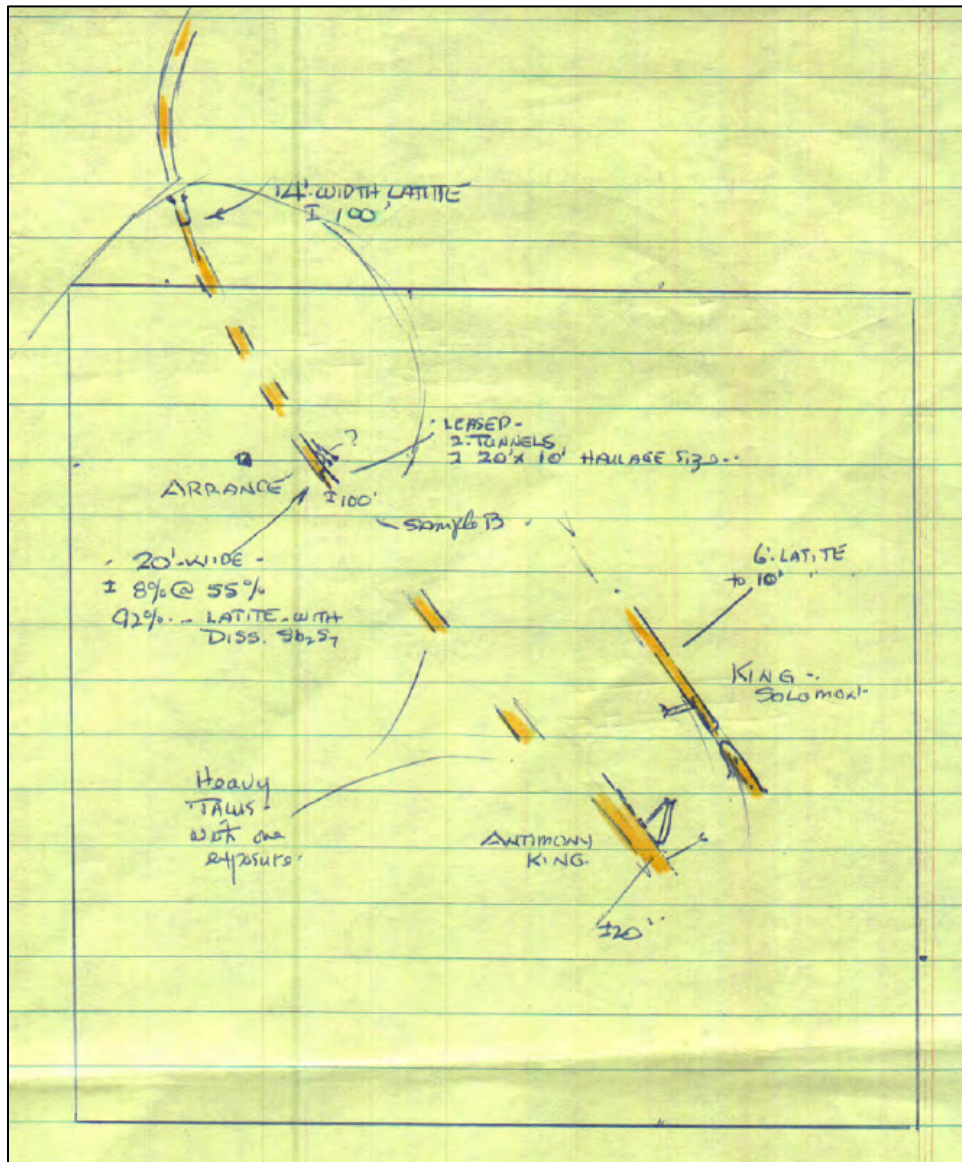 14' WIDTH LATITE
± 100'
?
LEASED -
2 TUNNELS
± 20' x 10' HAULAGE SIZE --
ARRANCE
± 100'
- Sample B
- 20' WIDE -
± 8% @ 55%
92% -- LATITE WITH
DISS. Sb₂S₇
6' LATITE
to 10' "
KING --
SOLOMON
Heavy
TALUS -
with one
exposure.
ANTIMONY
KING
±20"